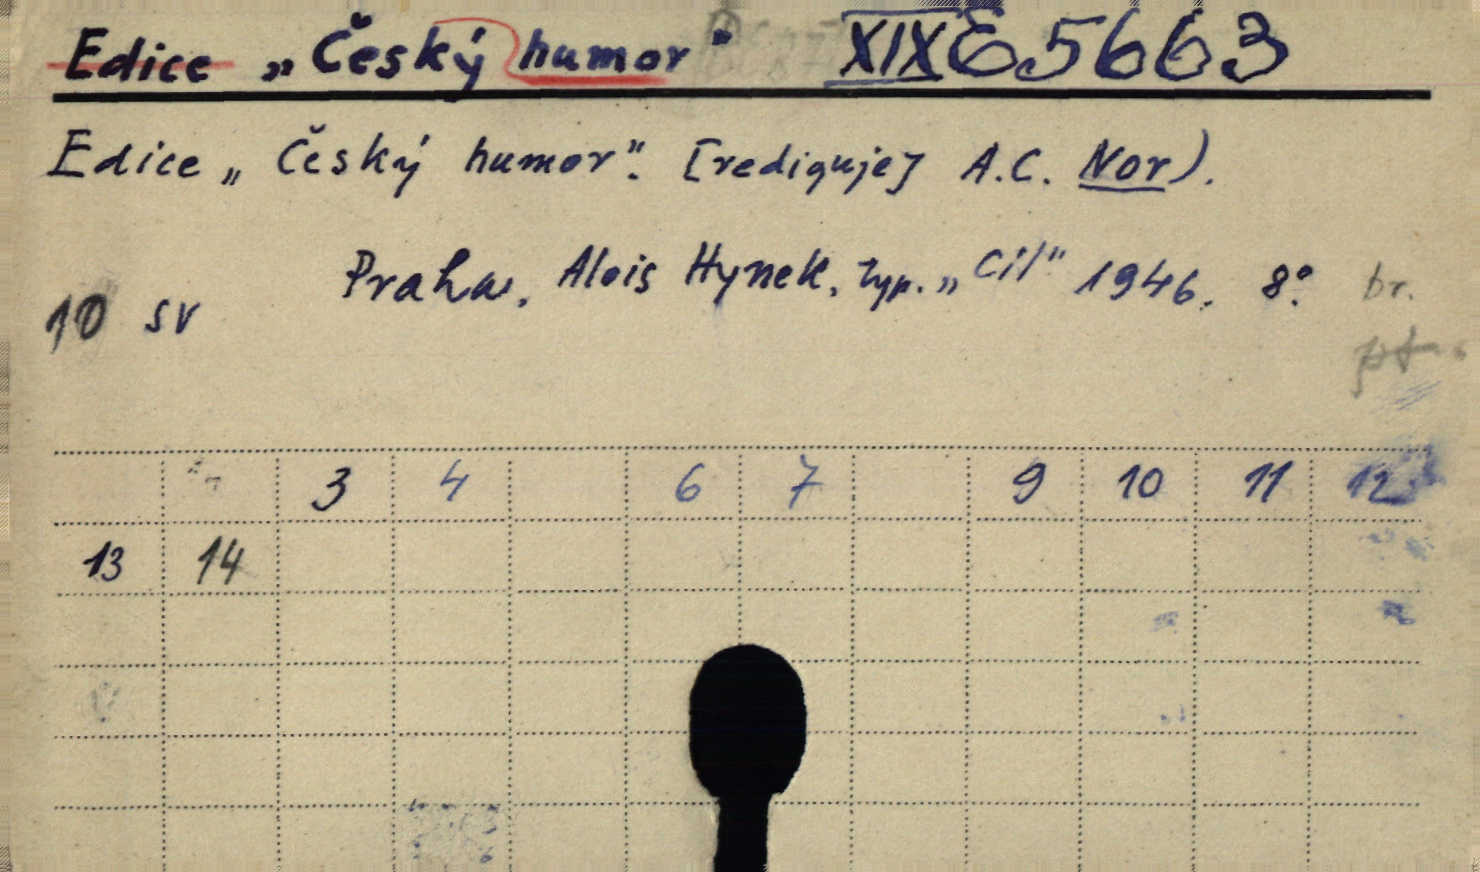 Edice „Český humor" XIX E 5663
Edice „Český humor". [rediguje] A.C. Nor).
Praha, Alois Hynek, typ. „Cíl" 1946. 8°. br.
10 sv
pt.
3 4 6 7 9 10 11 12
13 14